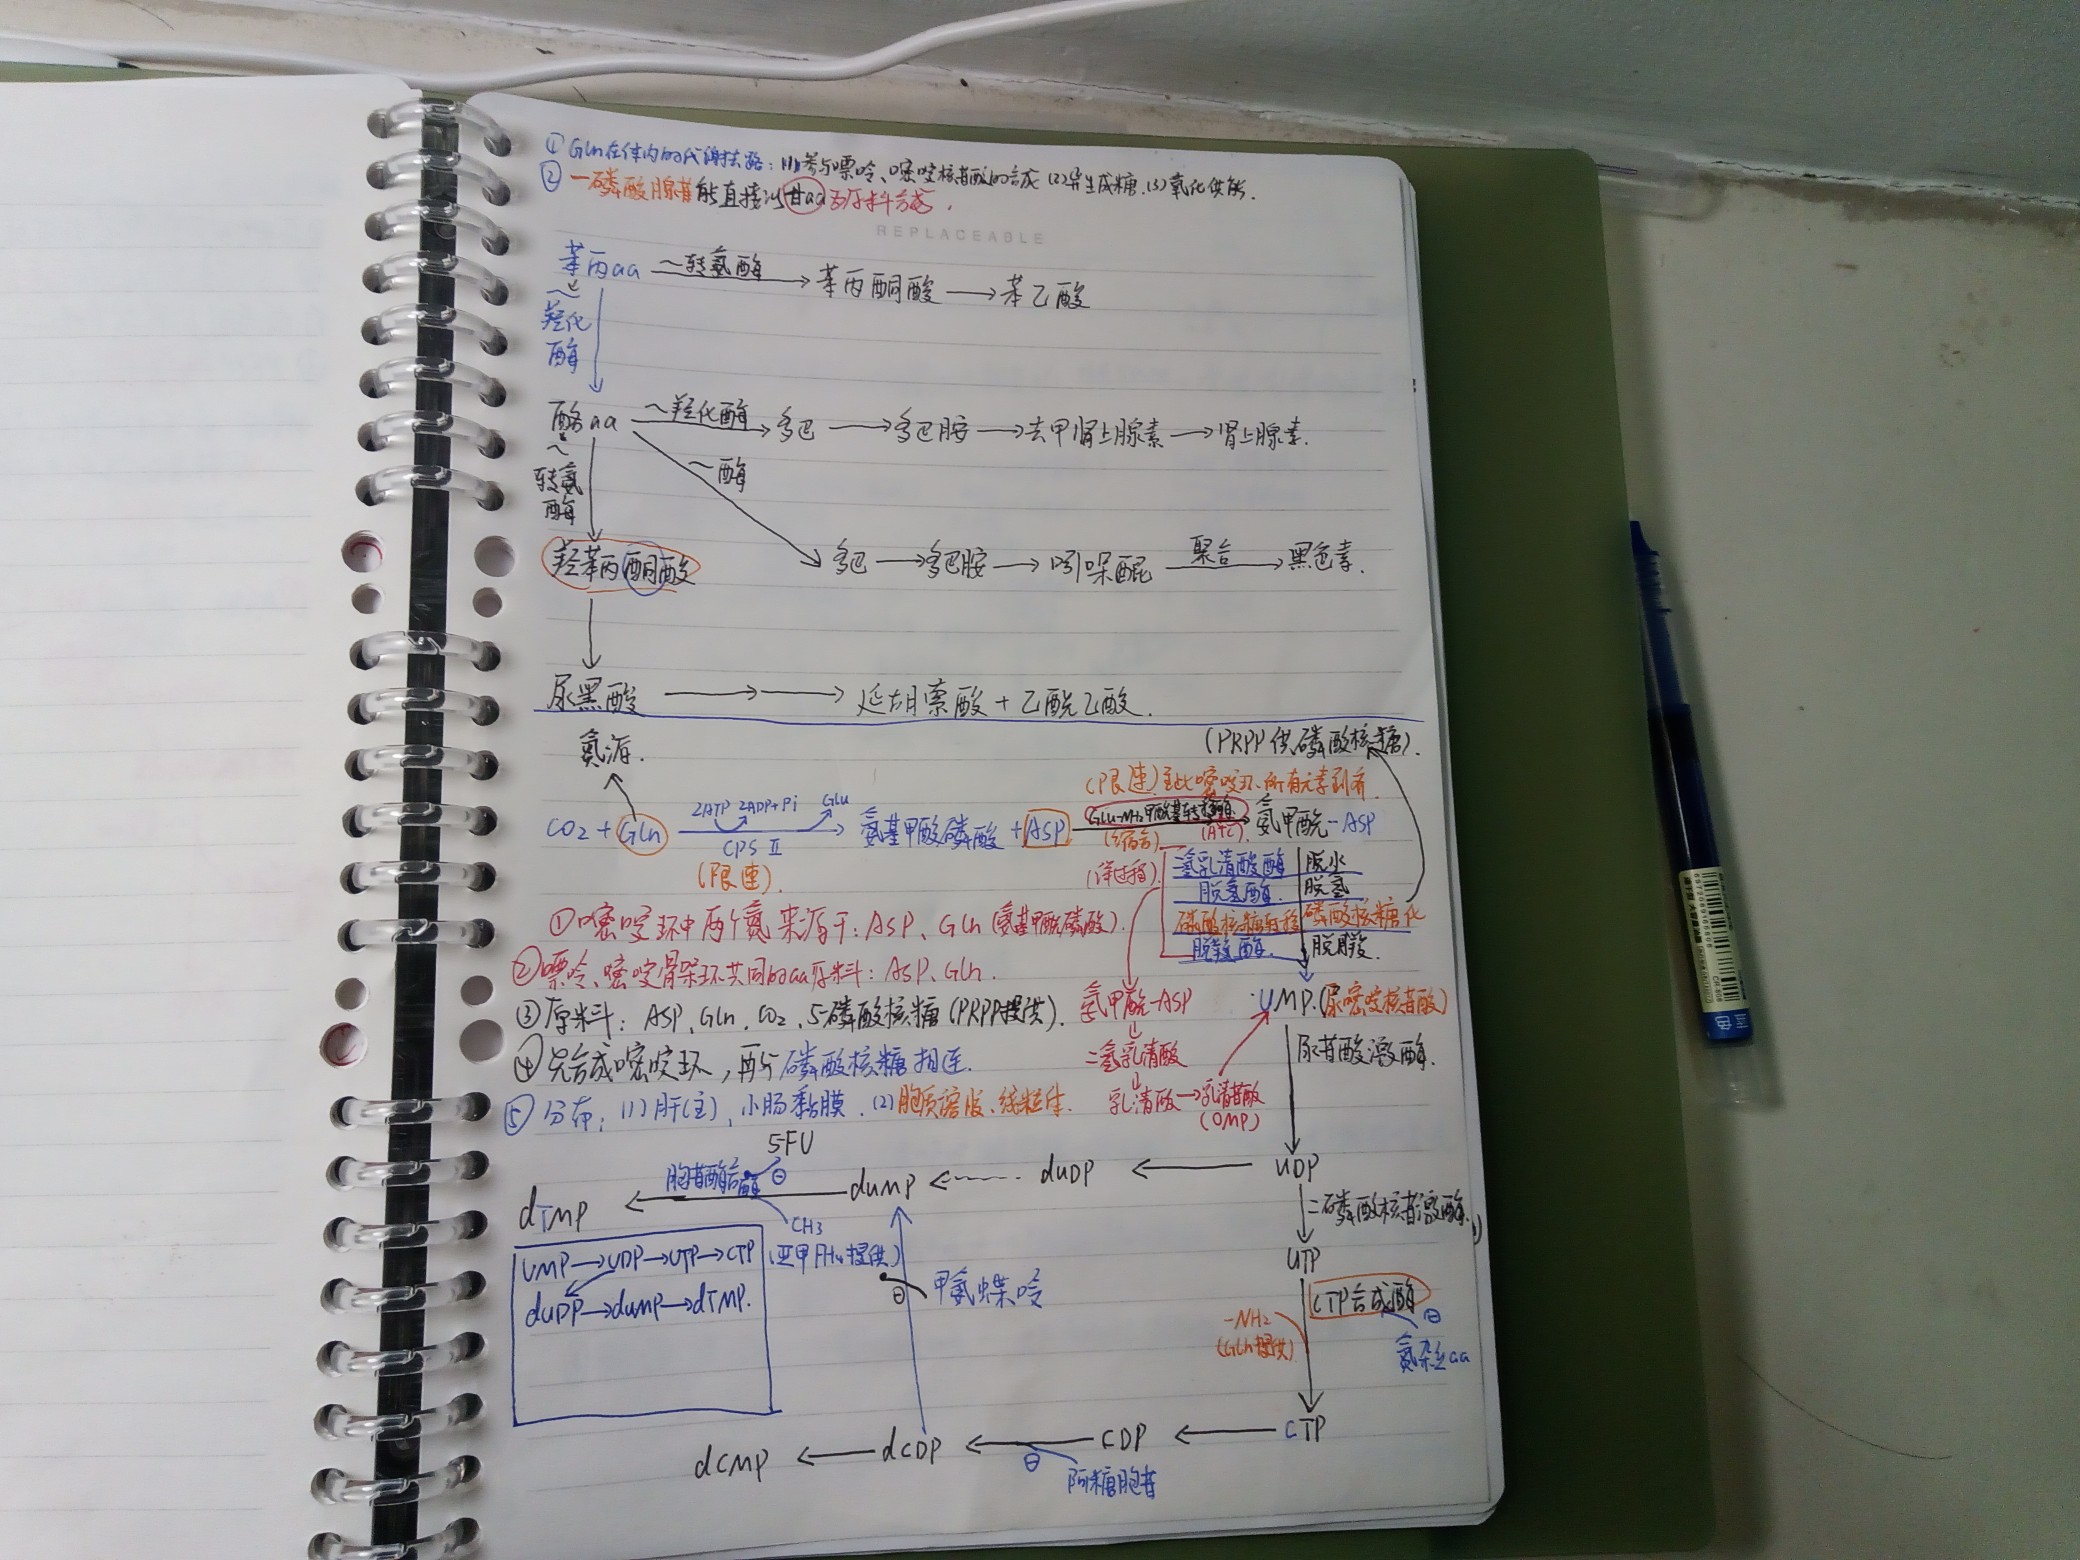 ① Gln在体内的代谢去路：(1)参与嘌呤、嘧啶核苷酸的合成 (2)异生成糖.(3)氧化供能.
② 一磷酸腺苷能直接以甘aa为原料合成.
REPLACEABLE
苯丙aa ～转氨酶 → 苯丙酮酸 → 苯乙酸
～羟化酶
酪aa ～羟化酶 → 多巴 → 多巴胺 → 去甲肾上腺素 → 肾上腺素.
～转氨酶
～酶
羟苯丙酮酸
多巴 → 多巴胺 → 吲哚醌 聚合 → 黑色素.
尿黑酸 → → 延胡索酸 + 乙酰乙酸.
氮源.
(PRPP供磷酸核糖).
(限速) 至此嘧啶环所有元素到齐
2ATP 2ADP+Pi Glu
CO2 + Gln → 氨基甲酸磷酸 + ASP → 氨甲酰-ASP
CPS Ⅱ
(限速).
甲酰基转移酶
(缩合) (ATC)
(详过程)
二氢乳清酸酶 脱水
脱氢酶 脱氢
磷酸核糖转移 磷酸核糖化
脱羧酶 脱羧
① 嘧啶环中两个氮来源于：ASP、Gln (氨基甲酰磷酸).
② 嘌呤、嘧啶骨架环共同的aa原料：ASP、Gln.
③ 原料：ASP、Gln、CO2、5-磷酸核糖 (PRPP提供).
④ 先合成嘧啶环，再与磷酸核糖相连.
⑤ 分布：(1) 肝(主)、小肠黏膜.(2)胞质溶胶、线粒体.
氨甲酰-ASP
二氢乳清酸
乳清酸 → 乳清苷酸
(OMP)
UMP.(尿嘧啶核苷酸)
尿苷酸激酶.
5FU
胸苷酸合酶 ⊖
dTMP ← dUMP ← dUDP ← UDP
CH3
(亚甲FH4提供)
二磷酸核苷激酶.
UMP → UDP → UTP → CTP
dUDP → dUMP → dTMP.
UTP
⊖ 甲氨蝶呤
CTP合成酶
⊖
氮杂丝aa
-NH2
(Gln提供)
dCMP ← dCDP ← CDP ← CTP
⊖ 阿糖胞苷
蓝色